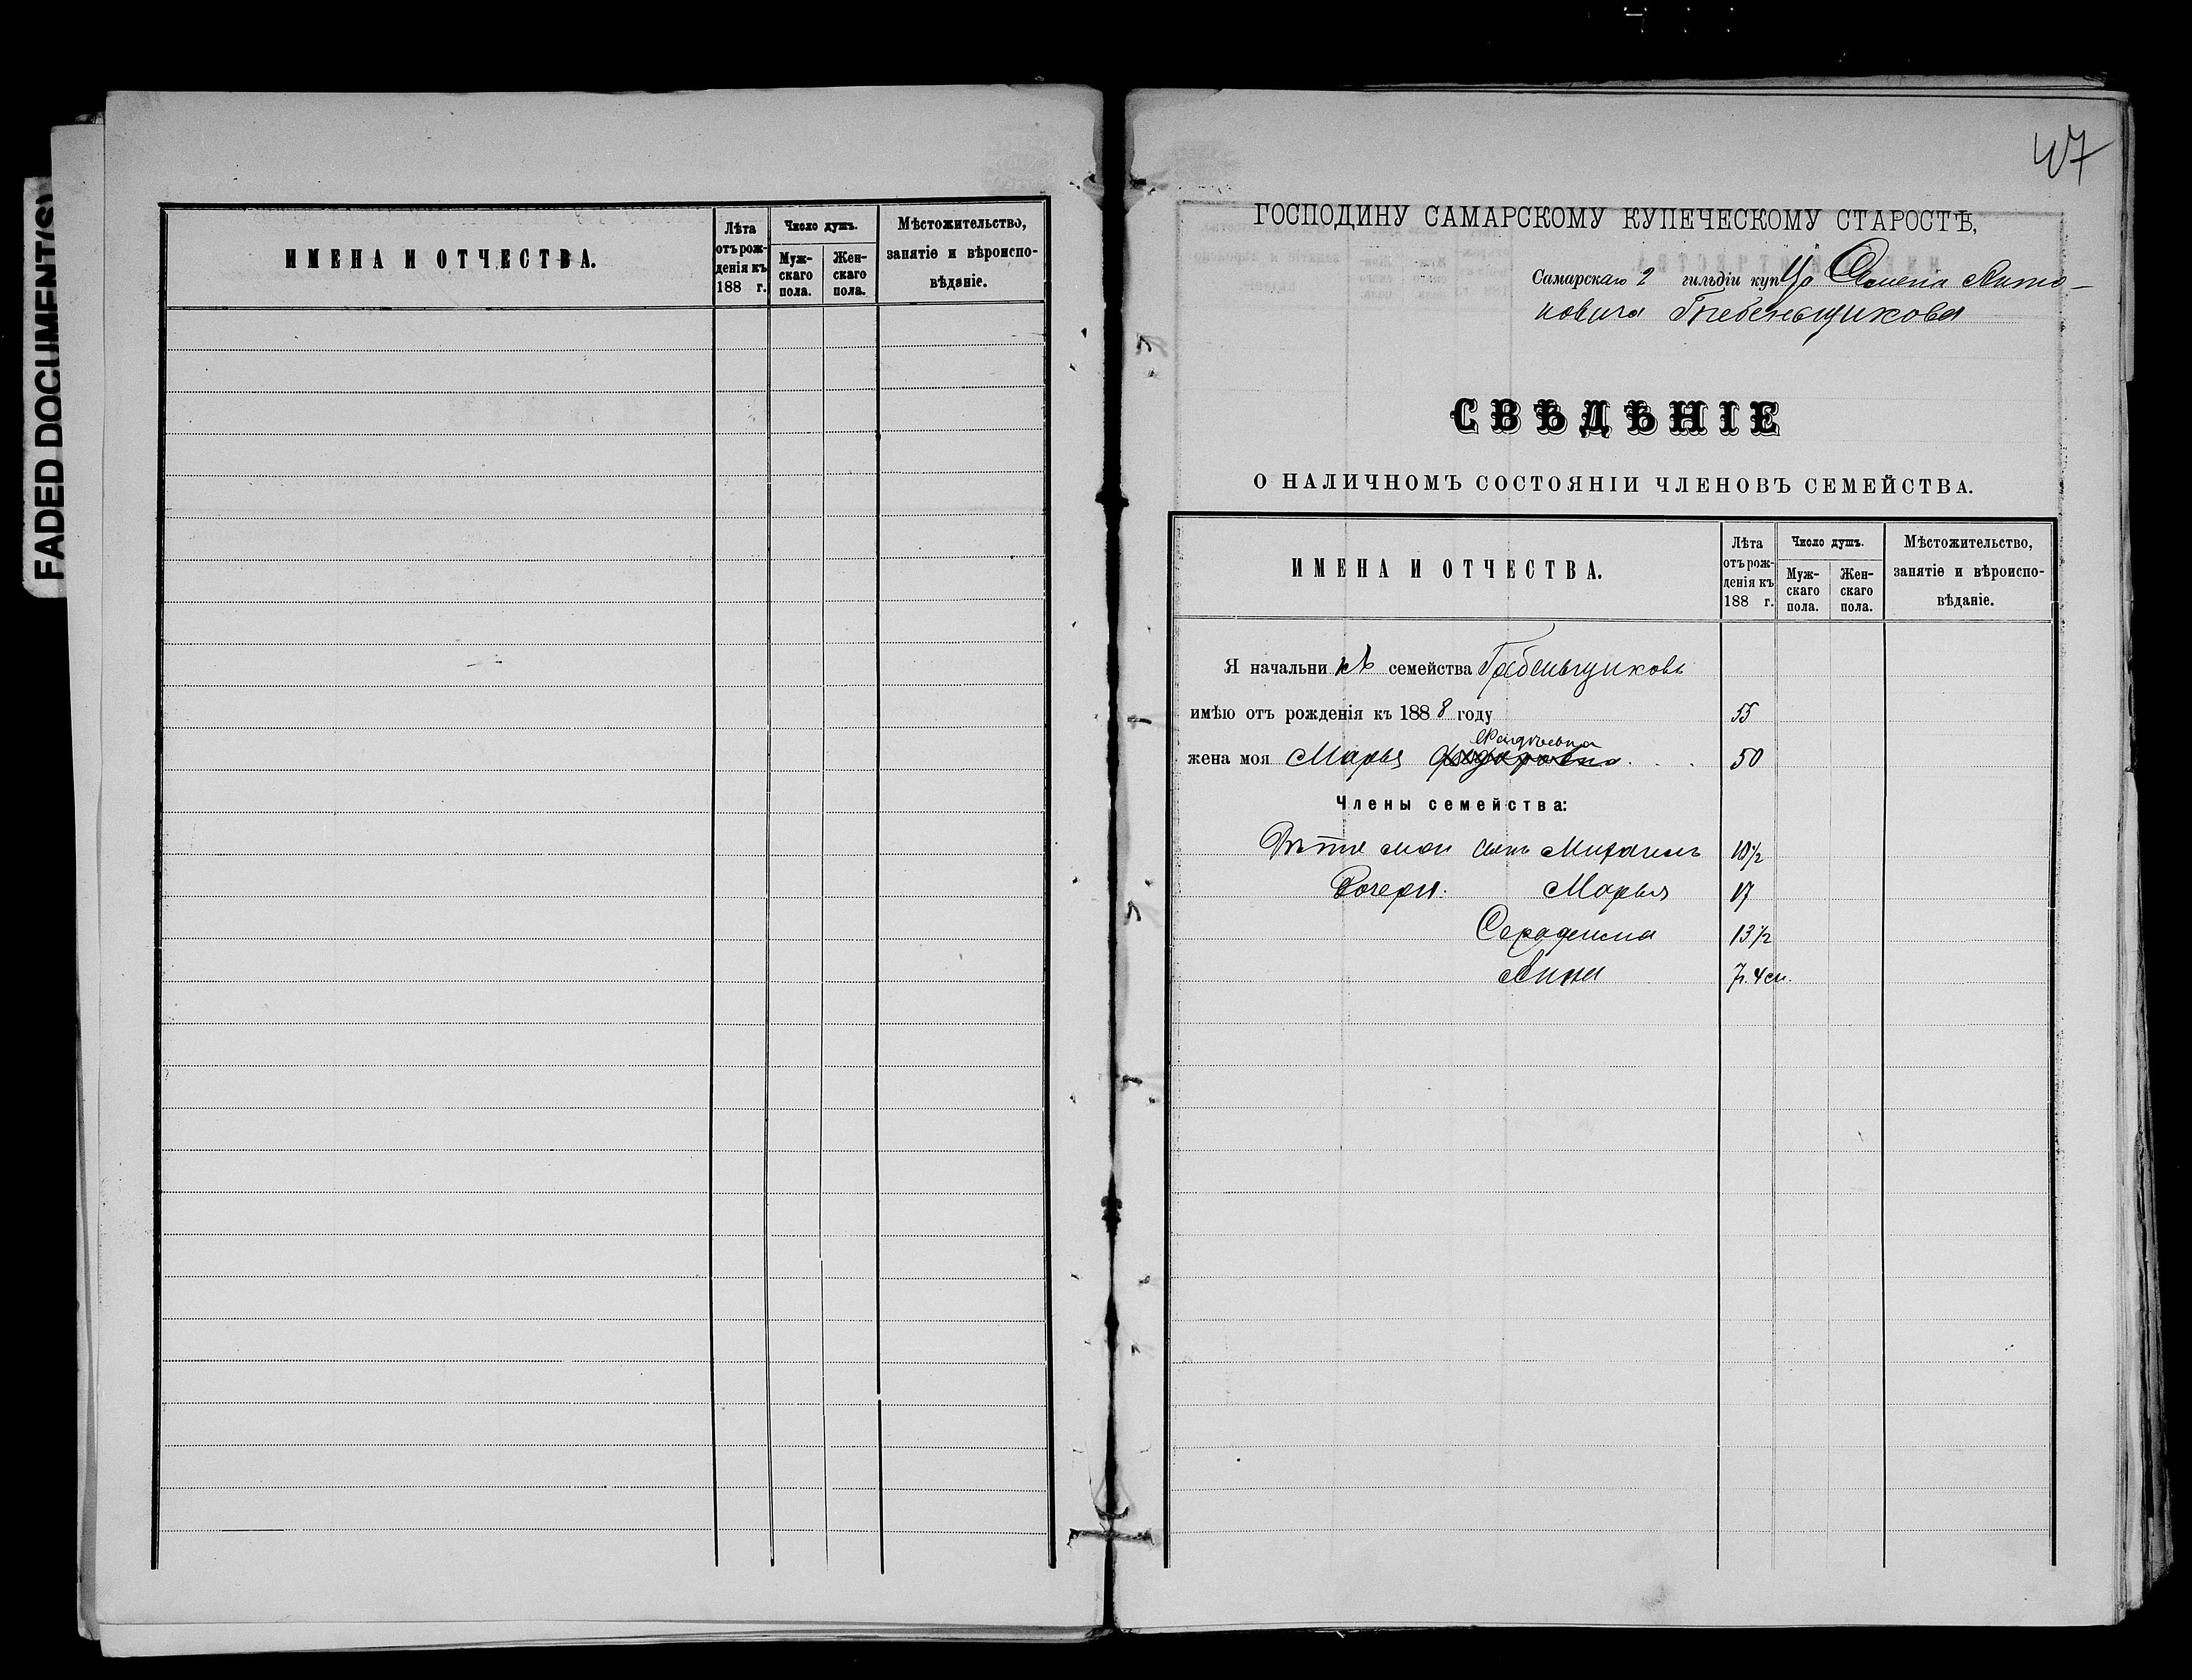 FADED DOCUMENT(S)
ИМЕНА И ОТЧЕСТВА.
Лѣта
отъ рож-
денія къ
188 г.
Число душъ.
Муж-
скаго
пола.
Жен-
скаго
пола.
Мѣстожительство,
занятіе и вѣроиспо-
вѣданіе.
47
ГОСПОДИНУ САМАРСКОМУ КУПЕЧЕСКОМУ СТАРОСТѢ,
Самарскаго 2 гильдіи купца Семена Анто-
новича Гребеньщикова
СВѢДѢНІЕ
О НАЛИЧНОМЪ СОСТОЯНІИ ЧЛЕНОВЪ СЕМЕЙСТВА.
ИМЕНА И ОТЧЕСТВА.
Лѣта
отъ рож-
денія къ
188 г.
Число душъ.
Муж-
скаго
пола.
Жен-
скаго
пола.
Мѣстожительство,
занятіе и вѣроиспо-
вѣданіе.
Я начальникъ семейства Гребеньщиковъ
имѣю отъ рожденія къ 1888 году 55
жена моя Марья 50
Члены семейства:
Дѣти мои сынъ Михаилъ 10 1/2
Дочери: Марья 17
Серафима 13 1/2
Анна 7 л. 4 м.